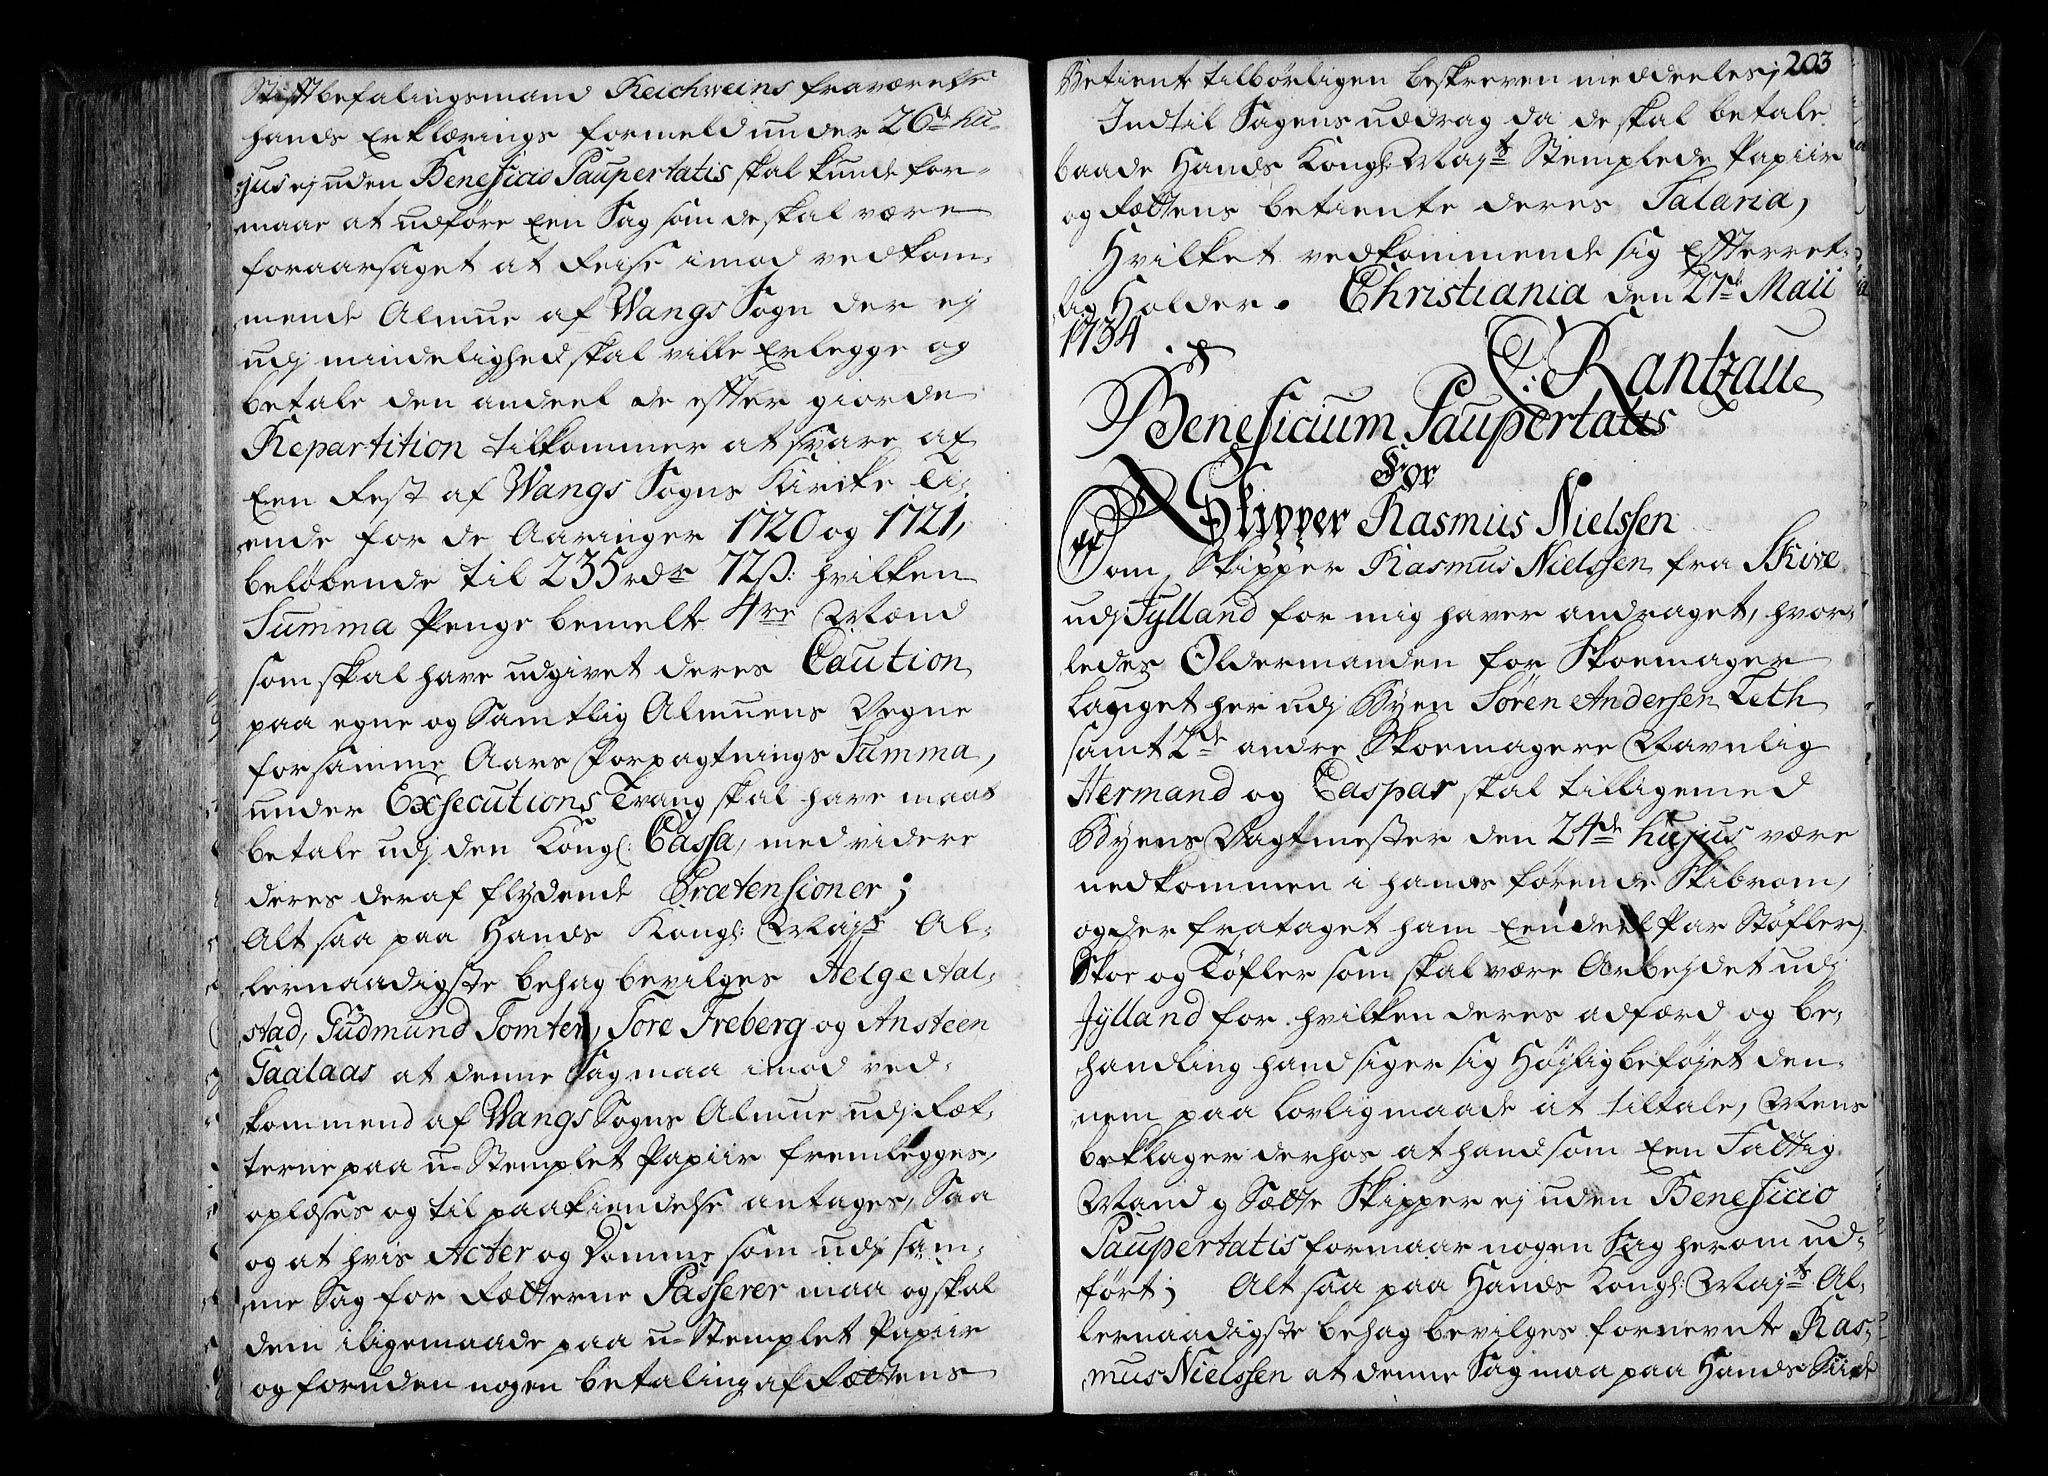 Stiftbefalingsmand Reichweins fraværelse
hands Erklærings formeld under 26de hu-
jus ej uden Beneficio Paupertatis skal kunde for-
maar at udføre Een Sag som de skal være
foraarsaget at Reise imod vedkom-
mende Almue af Wangs Sogn der ej
udj mindelighed skal ville Erlegge og
betale den andeel de effter giorde
Repartition tilkommer at svare af
Een Rest af Wangs Sogns Kirke Ti-
ende for de Aaringer 1720 og 1721,
beløbende til 235 rdr 72 ß: hvilken
Summa Penge bemelte 4re Mænd
som skal have udgivet deres Caution
paa egne og Samtlig Almuens Vegne
for samme Aars Forpagtnings Summa,
under Exsecutions Tvang skal have maat
betale udj den Kongl: Cassa, med videre
deres deraf flydende Prætensioner;
Alt saa paa Hands Kongl: Mayts Al-
lernaadigste behag bevilges Helge Aal-
stad, Gudmund Tomter, Tore Freberg og Ansteen
Gaalaas at denne Sag maa imod ved-
kommend af Wangs Sogns Almue udj Ret-
terne paa u-Stemplet Papiir fremlegges,
oplæses og til paakiendelse antages, Saa
og at hvis Acter og Domme som udj sam-
me Sag for Retterne Passerer maa og skal
dem iligemaade paa u-Stemplet Papiir
og foruden nogen betaling af Rettens
203
Betiente tilbørligen beskreven meddeeles;
Indtil Sagens uddrag da de skal betale
baade Hands Kongl: Mayts Stemplede Papiir
og Rettens betiente deres Salaria,
Hvilket vedkommende sig Effterret-
lig Holder. Christiania den 27de Maii
1734
C: Rantzau
Beneficium Paupertatis
For
Skipper Rasmus Nielssen
Som Skipper Rasmus Nielssen fra Skive
udj Jylland for mig haver andraget, hvor-
ledes Oldermanden for Skoemager
Lauget her udj Byen Søren Andersen Leth
samt 2de andre Skoemagere Navnlig
Hermand og Caspar skal tilligemed
Byens Vagtmester den 24de hujus være
nedkommen i hands førende Skibrom,
og der frataget ham Een deel Par Støfler,
Skoe og Tøfler som skal være Arbejdet udj
Jylland for hvilken deres adfærd og be-
handling hand siger sig Højlig beføjet den-
nem paa lovlig maade at tiltale, Mens
beklager derhos at hand som Een Fattig
Mand og Sætte Skipper ej uden Beneficio
Paupertatis formaar nogen Sag herom ud-
ført; Alt saa paa Hands Kongl: Mayts Al-
lernaadigste behag bevilges fornevnte Ras-
mus Nielssen at denne Sag maa paa Hands Siide